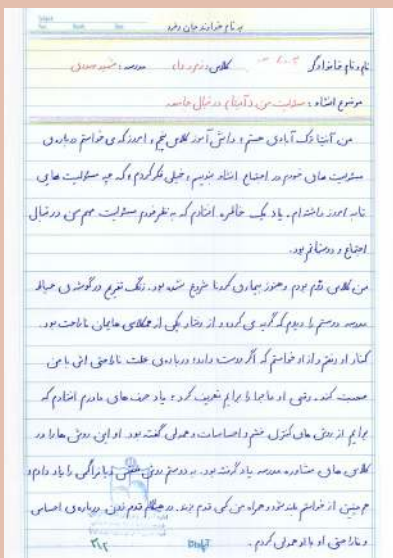 به نام خداوند جان و خرد
نام و نام خانوادگی کلاس: مدرسه: شهید
موضوع انشاء: مسئولیت من در قبال جامعه
من آنیتا آبادی هستم، دانش آموز کلاس پنجم، امروز که می خواستم درباره ی
مسئولیت های خودم در اجتماع انشاء بنویسم، خیلی فکر کردم، که چه مسئولیت هایی
تا به امروز داشته ام. یاد یک خاطره افتادم که به نظر خودم مسئولیت مهم من در قبال
اجتماع و دوستانم بود.
من کلاس دوم بودم و هنوز بیماری کرونا شروع نشده بود. زنگ تفریح در گوشه ی حیاط
مدرسه دوستم را دیدم که گریه می کرد و از رفتار یکی از همکلاسی هایمان ناراحت بود.
کنار او رفتم و از او خواستم که اگر دوست دارد، درباره ی علت ناراحتی اش با من
صحبت کند. وقتی او ماجرا را برایم تعریف کرد، یاد حرف های مادرم افتادم که
برایم از روش های کنترل خشم و احساسات و همدلی گفته بود. او این روش ها را در
کلاس های مشاوره مدرسه یاد گرفته بود. به دوستم روش تنفس را یاد دادم و
هم چنین از خواستم بلند شود و همراه من کمی قدم بزند. در هنگام قدم زدن درباره ی احساس
و ناراحتی او با او همدلی کردم.